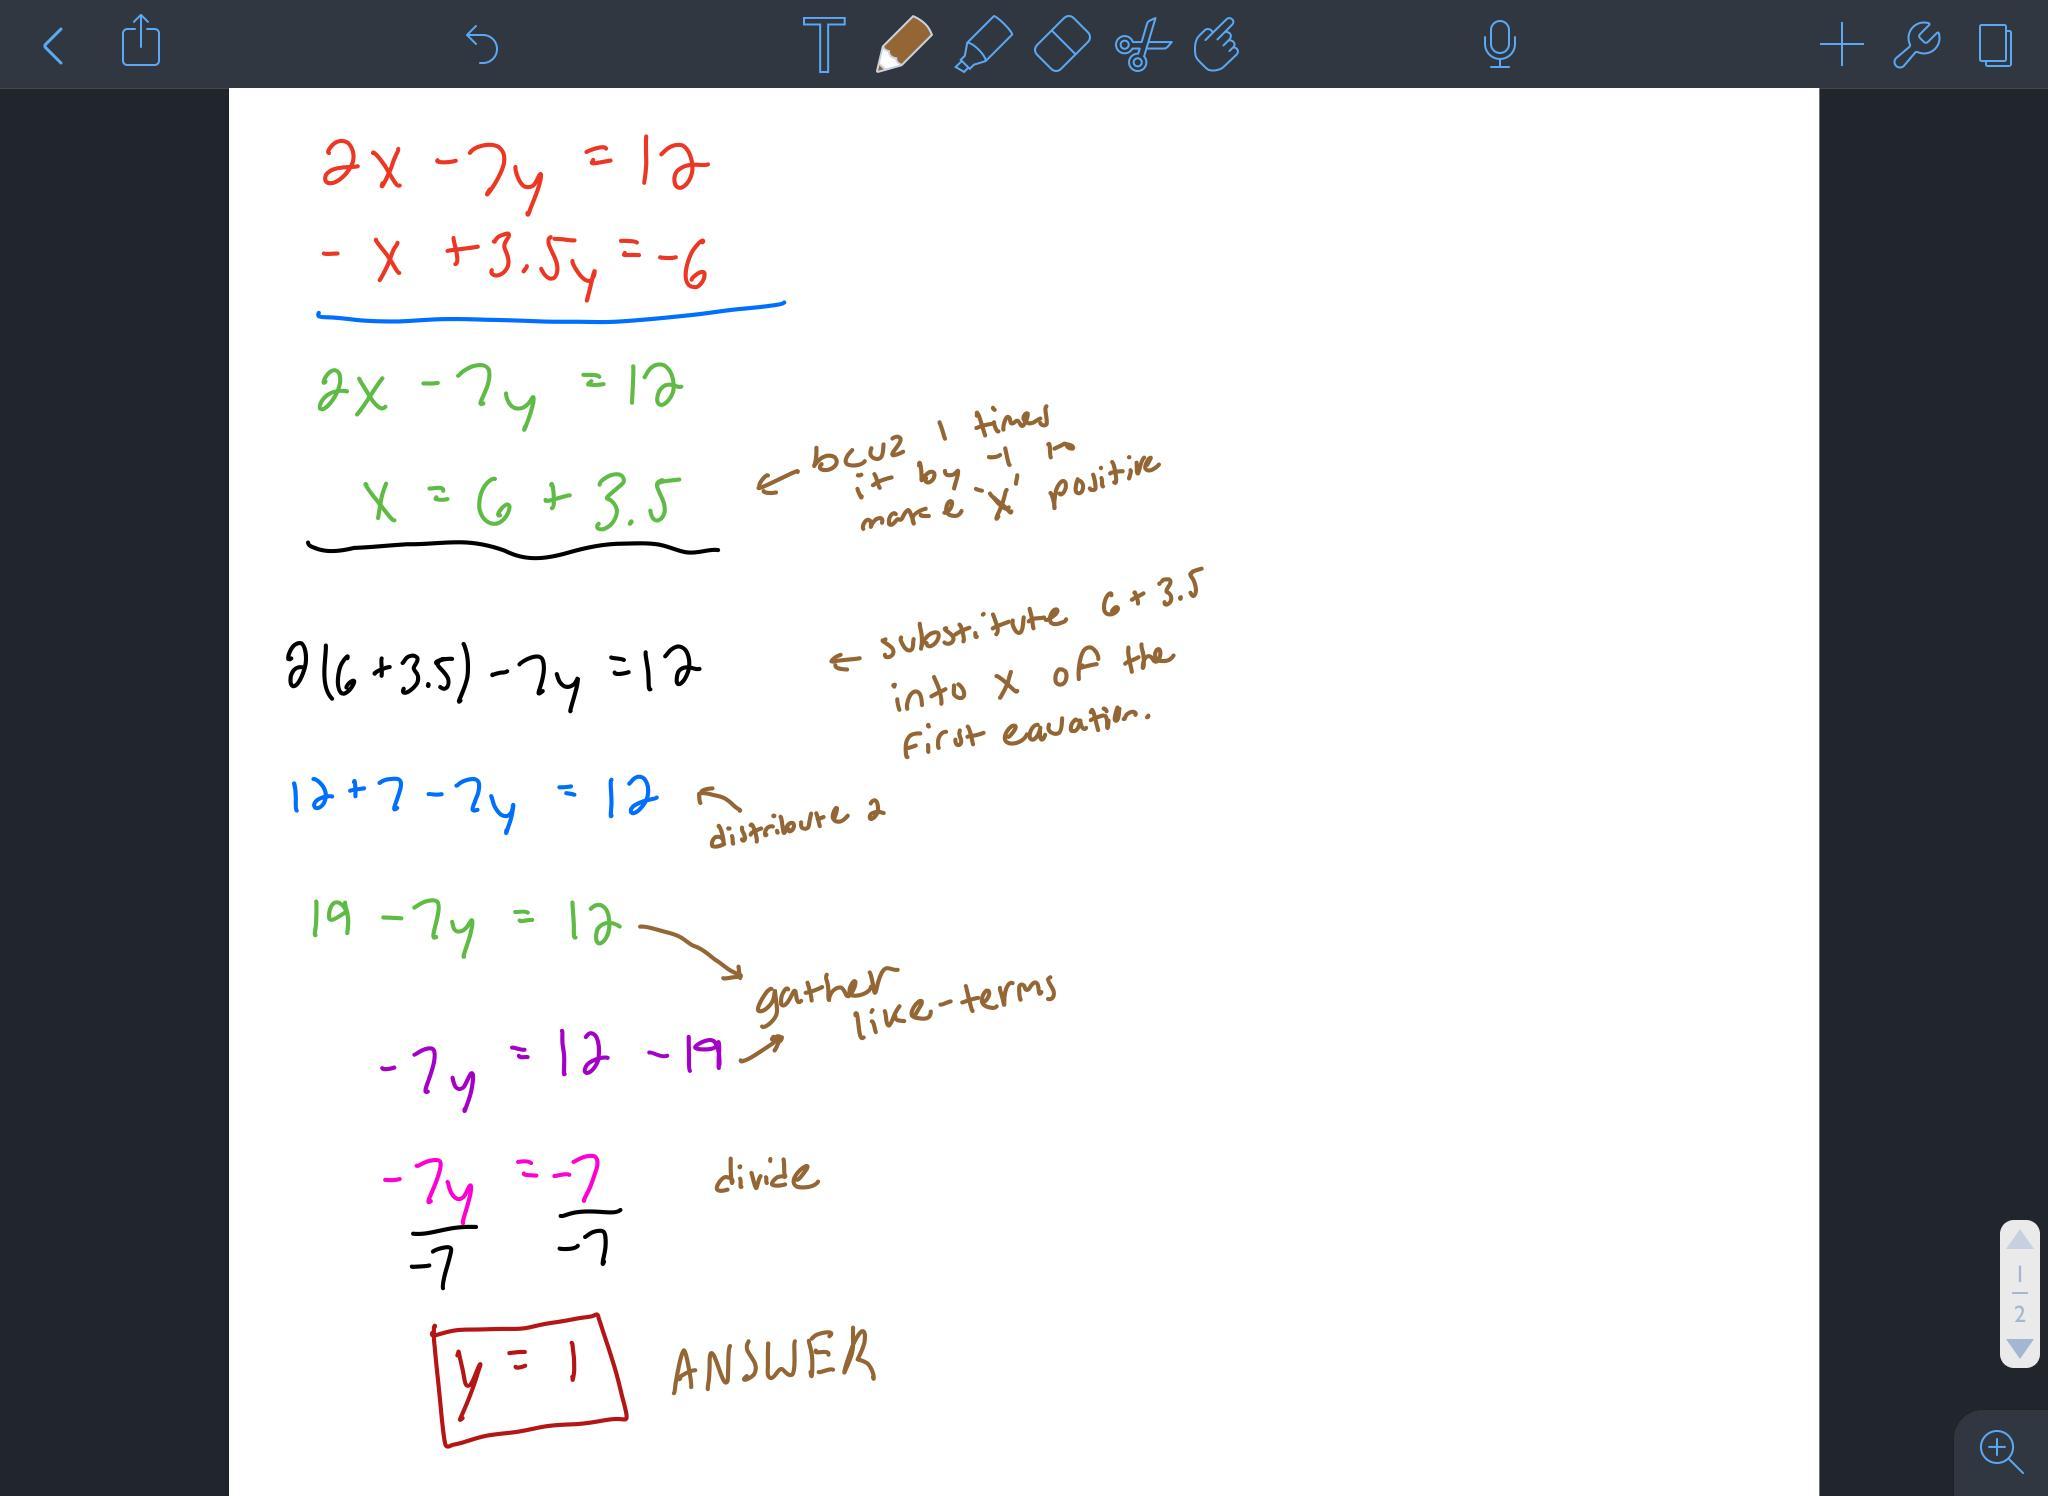 2x - 7y = 12
- x + 3.5y = -6
2x - 7y = 12
x = 6 + 3.5
bcuz I times
it by -1 to
make "x" positive
2(6 + 3.5) - 7y = 12
substitute 6 + 3.5
into x of the
first eauation.
12 + 7 - 7y = 12
distribute 2
19 - 7y = 12
gather
like-terms
-7y = 12 - 19
-7y = -7
divide
-7 -7
y = 1 ANSWER
T
1
2